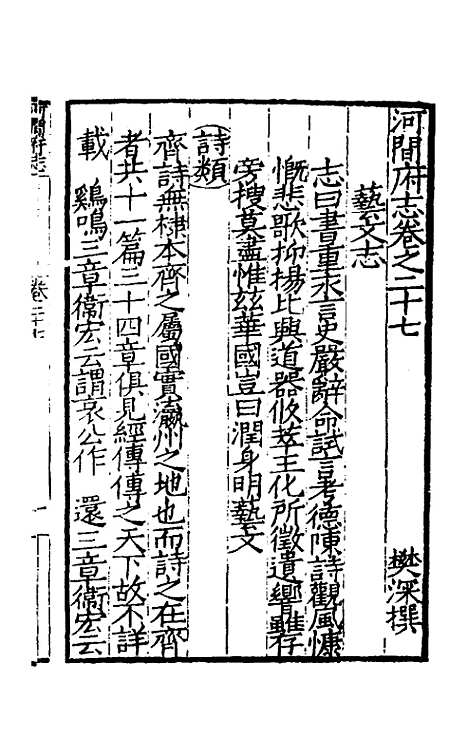 河間府志卷之二十七　樊深撰
藝文志
志曰書重永言史嚴辭命試言考德陳詩觀風慷
慨悲歌抑揚比興道器攸萃王化所徵遺響雖存
旁搜莫盡惟茲華國豈曰潤身明藝文
詩類
齊詩無棣本齊之屬國實瀛州之地也而詩之在齊
者共十一篇三十四章俱見經傳傳之天下故不詳
載　鷄鳴三章衞宏云謂哀公作　還三章衞宏云
河間府志　卷二十七　一